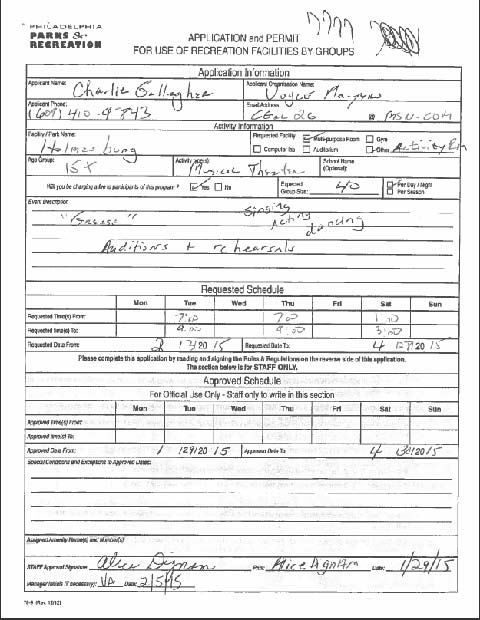 PHILADELPHIA
PARKS &
RECREATION
APPLICATION and PERMIT
FOR USE OF RECREATION FACILITIES BY GROUPS
Application Information
Applicant Name: Charlie Gallagher
Applicant Organization Name:
Applicant Phone: (609) 410-9743
Email Address @ MSN.COM
Activity Information
Facility/Park Name: Holmesburg
Requested Facility Multi-purpose Room Gym
Computer lab Auditorium Other Activity
Age Group: 15+
Activity (sport) Musical Theatre
School Name (Optional):
Will you be charging active participants of this program? Yes No
Expected Group Size: 40
Per Day / Night
Per Season
Event Description
"Grease" Singing
acting
dancing
Auditions + rehearsals
Requested Schedule
Mon Tue Wed Thu Fri Sat Sun
Requested Time(s) From: 7:00 7:00 1:00
Requested Time(s) To: 9:00 9:00 3:00
Requested Date From: 2 / 20 15 Requested Date To: 4 / 20 15
Please complete this application by reading and signing the Rules & Regulations on the reverse side of this application.
The section below is for STAFF ONLY.
Approved Schedule
For Official Use Only - Staff only to write in this section
Mon Tue Wed Thu Fri Sat Sun
Approved Time(s) From:
Approved Time(s) To:
Approved Date From: 1 /29/20 15 Approved Date To: 4 / 20 15
Special Conditions and Exceptions to Approved Dates:
STAFF Approval Signature: Print: Date: 1/29/15
Manager Initials (if necessary): VA Date: 2/5/15